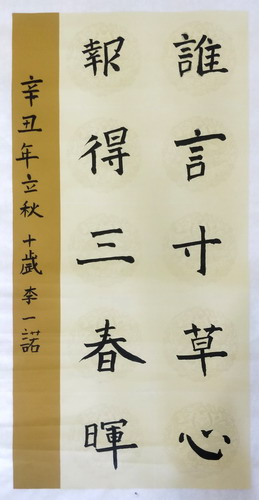 誰言寸草心
報得三春暉
辛丑年立秋 十歲 李一諾